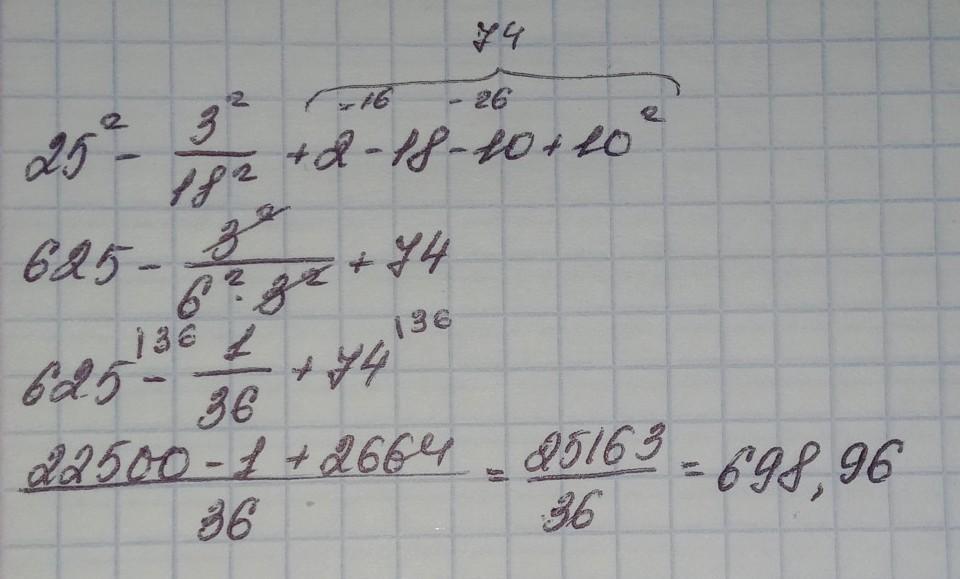 74
-16 -26
25² - 3²/18² + 2 - 18 - 10 + 10²
625 - 3²/6² · 3² + 74
625|36 - 1/36 + 74|36
22500 - 1 + 2664/36 = 25163/36 = 698,96